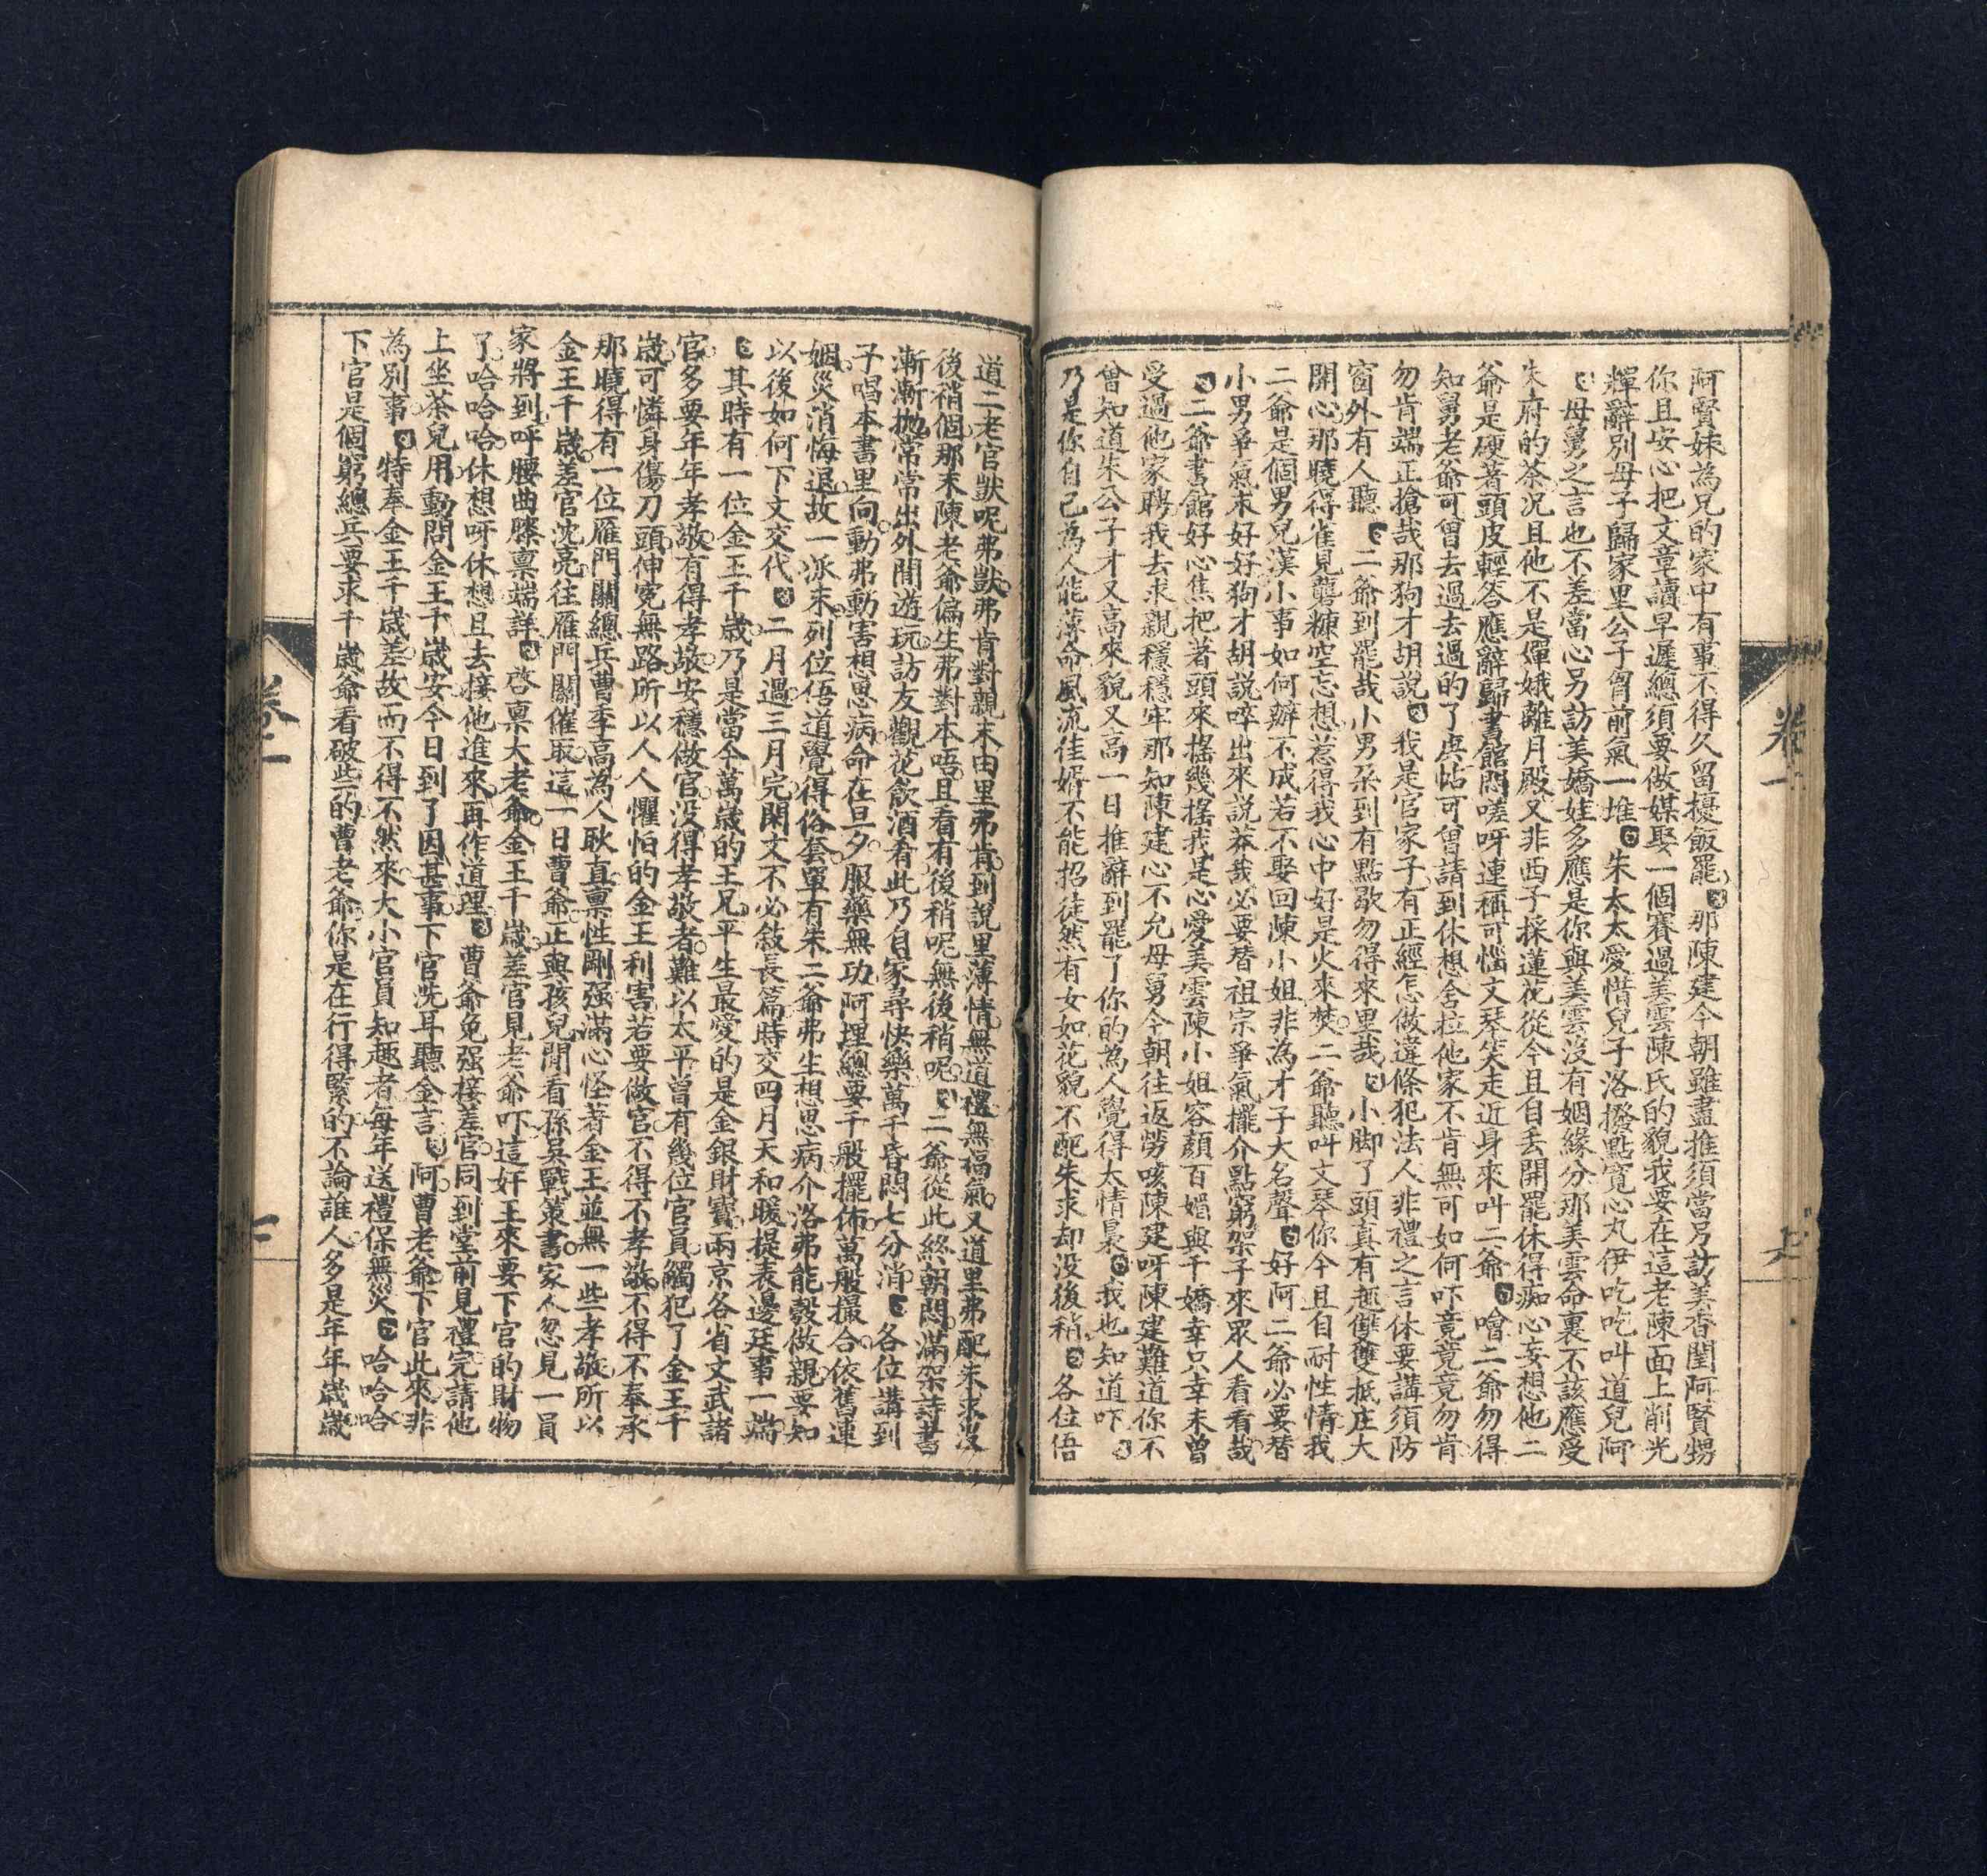 阿賢妹為兄的家中有事不得久留擾飯罷那陳建今朝雖盡推須當另訪美香閨阿賢甥
你且安心把文章讀早遲總須要做媒娶一個賽過美雲陳氏的貌我要在這老陳面上削光
輝辭別母子歸家里公子胷前氣一堆朱太太愛惜兒子洛撥點寬心丸伊吃吃叫道兒阿
母舅之言也不差當心另訪美嬌娃多應是你與美雲沒有姻緣分那美雲命裏不該應受
朱府的茶況且他不是嬋娥離月殿又非西子採蓮花從今且自丟開罷休得痴心妄想他二
爺是硬著頭皮輕答應辭歸書館悶嗟呀連稱可惱文琴笑走近身來叫二爺噲二爺勿得
知舅老爺可曾去過去過的了庚帖可曾請到休想舍拉他家不肯無可如何吓竟竟竟勿肯
勿肯端正搶哉那狗才胡說我是官家子有正經怎做違條犯法人非禮之言休要講須防
窗外有人聽二爺到罷哉小男朵到有點歇勿得來里哉小脚了頭真有趣雙雙抵庄大
開心那曉得雀見礱糠空忘想惹得我心中好是火來焚二爺聽叫文琴你今且自耐性情我
二爺是個男兒漢小事如何辦不成若不娶回陳小姐非為才子大名聲好阿二爺必要替
小男爭氣末好好好狗才胡說啐出來說莽哉必要替祖宗爭氣擺介點窮架子來眾人看看哉
二爺書館好心焦把著頭來搖幾搖我是心愛美雲陳小姐容顏百媚與千嬌幸只幸未曾
受過他家聘我去求親穩穩牢那知陳建心不允母舅今朝往返勞咳陳建呀陳建難道你不
曾知道朱公子才又高來貌又高一日推辭到罷了你的為人覺得太情裊我也知道吓
乃是你自己為人能薄命風流佳婿不能招徒然有女如花貌不配朱求却没後稍各位俉
道二老官獃呢弗獃弗肯對親末由里弗肯到說里薄情無道禮無福氣又道里弗配朱求沒
後稍個那末陳老爺偏生弗對本唔且看有後稍呢無後稍呢二爺從此終朝悶滿架詩書
漸漸拋常常出外閒遊玩訪友觀花飲酒看此乃自家尋快樂萬千昏悶七分消各位講到
子唱本書里向動弗動害想思病命在旦夕服藥無功阿埋總要千般擺佈萬般撮合依舊連
姻災消悔退故一派末列位俉道覺得俗套單有朱二爺弗生想思病介洛弗能彀做親要知
以後如何下文交代二月過三月完閑文不必敘長篇時交四月天和暖提表邊廷事一端
其時有一位金王千歲乃是當今萬歲的王兄平生最愛的是金銀財寶兩京各省文武諸
官多要年年孝敬有得孝敬安穩做官没得孝敬者難以太平曾有幾位官員觸犯了金王千
歲可憐身傷刀頭伸寃無路所以人人懼怕的金王利害若要做官不得不孝敬不得不奉承
那曉得有一位雁門關總兵曹季高為人耿直禀性剛强滿心怪著金王並無一些孝敬所以
金王千歲差官沈亮往雁門關催取這一日曹爺正與孩兒閒看孫吳戰策書家人忽見一員
家將到呼腰曲膝禀端詳啓禀大老爺金王千歲差官見老爺吓這奸王來要下官的財物
了哈哈哈休想呀休想且去接他進來再作道理曹爺免强接差官同到堂前見禮完請他
上坐茶兒用動問金王千歲安今日到了因甚事下官洗耳聽金言阿曹老爺下官此來非
為別事特奉金王千歲差故而不得不然來大小官員知趣者每年送禮保無災哈哈哈
下官是個窮總兵要求千歲爺看破些的曹老爺你是在行得緊的不論誰人多是年年歲歲
卷一
七
卷二
七